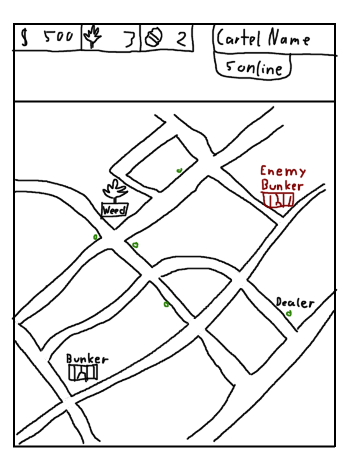 $ 500 3 2 Cartel Name
5 online
Enemy
Bunker
Weed
Dealer
Bunker